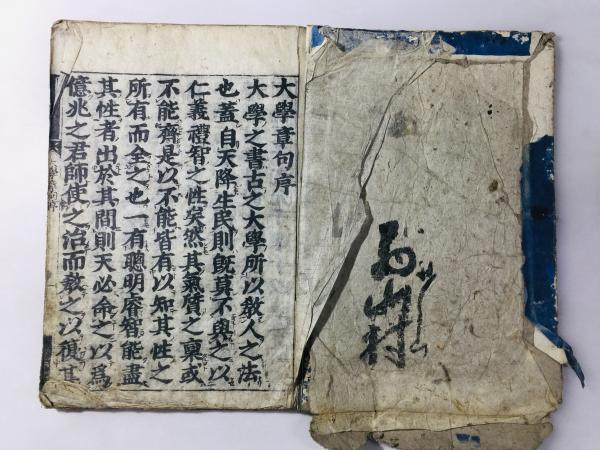 山村
大學章句序
大學之書古之大學所以敎人之法
也蓋自天降生民則旣莫不與之以
仁義禮智之性矣然其氣質之稟或
不能齊是以不能皆有以知其性之
所有而全之也一有聰明睿智能盡
其性者出於其間則天必命之以爲
億兆之君師使之治而敎之以復其